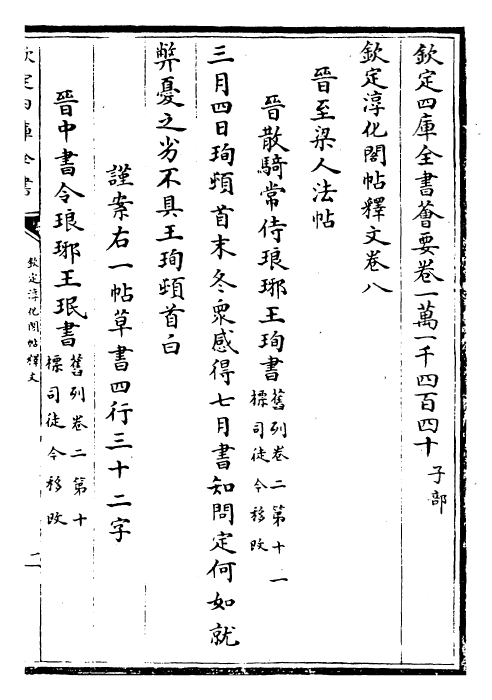 欽定四庫全書薈要卷一萬一千四百四十 子部
欽定淳化閣帖釋文卷八
晉至梁人法帖
晉散騎常侍琅琊王珣書 舊列卷二第十一
標司徒今移改
三月四日珣頓首末冬衆感得七月書知問定何如就
弊憂之劣不具王珣頓首白
謹案右一帖草書四行三十二字
晉中書令琅琊王珉書 舊列卷二第十
標司徒今移改
欽定四庫全書
欽定淳化閣帖釋文
二